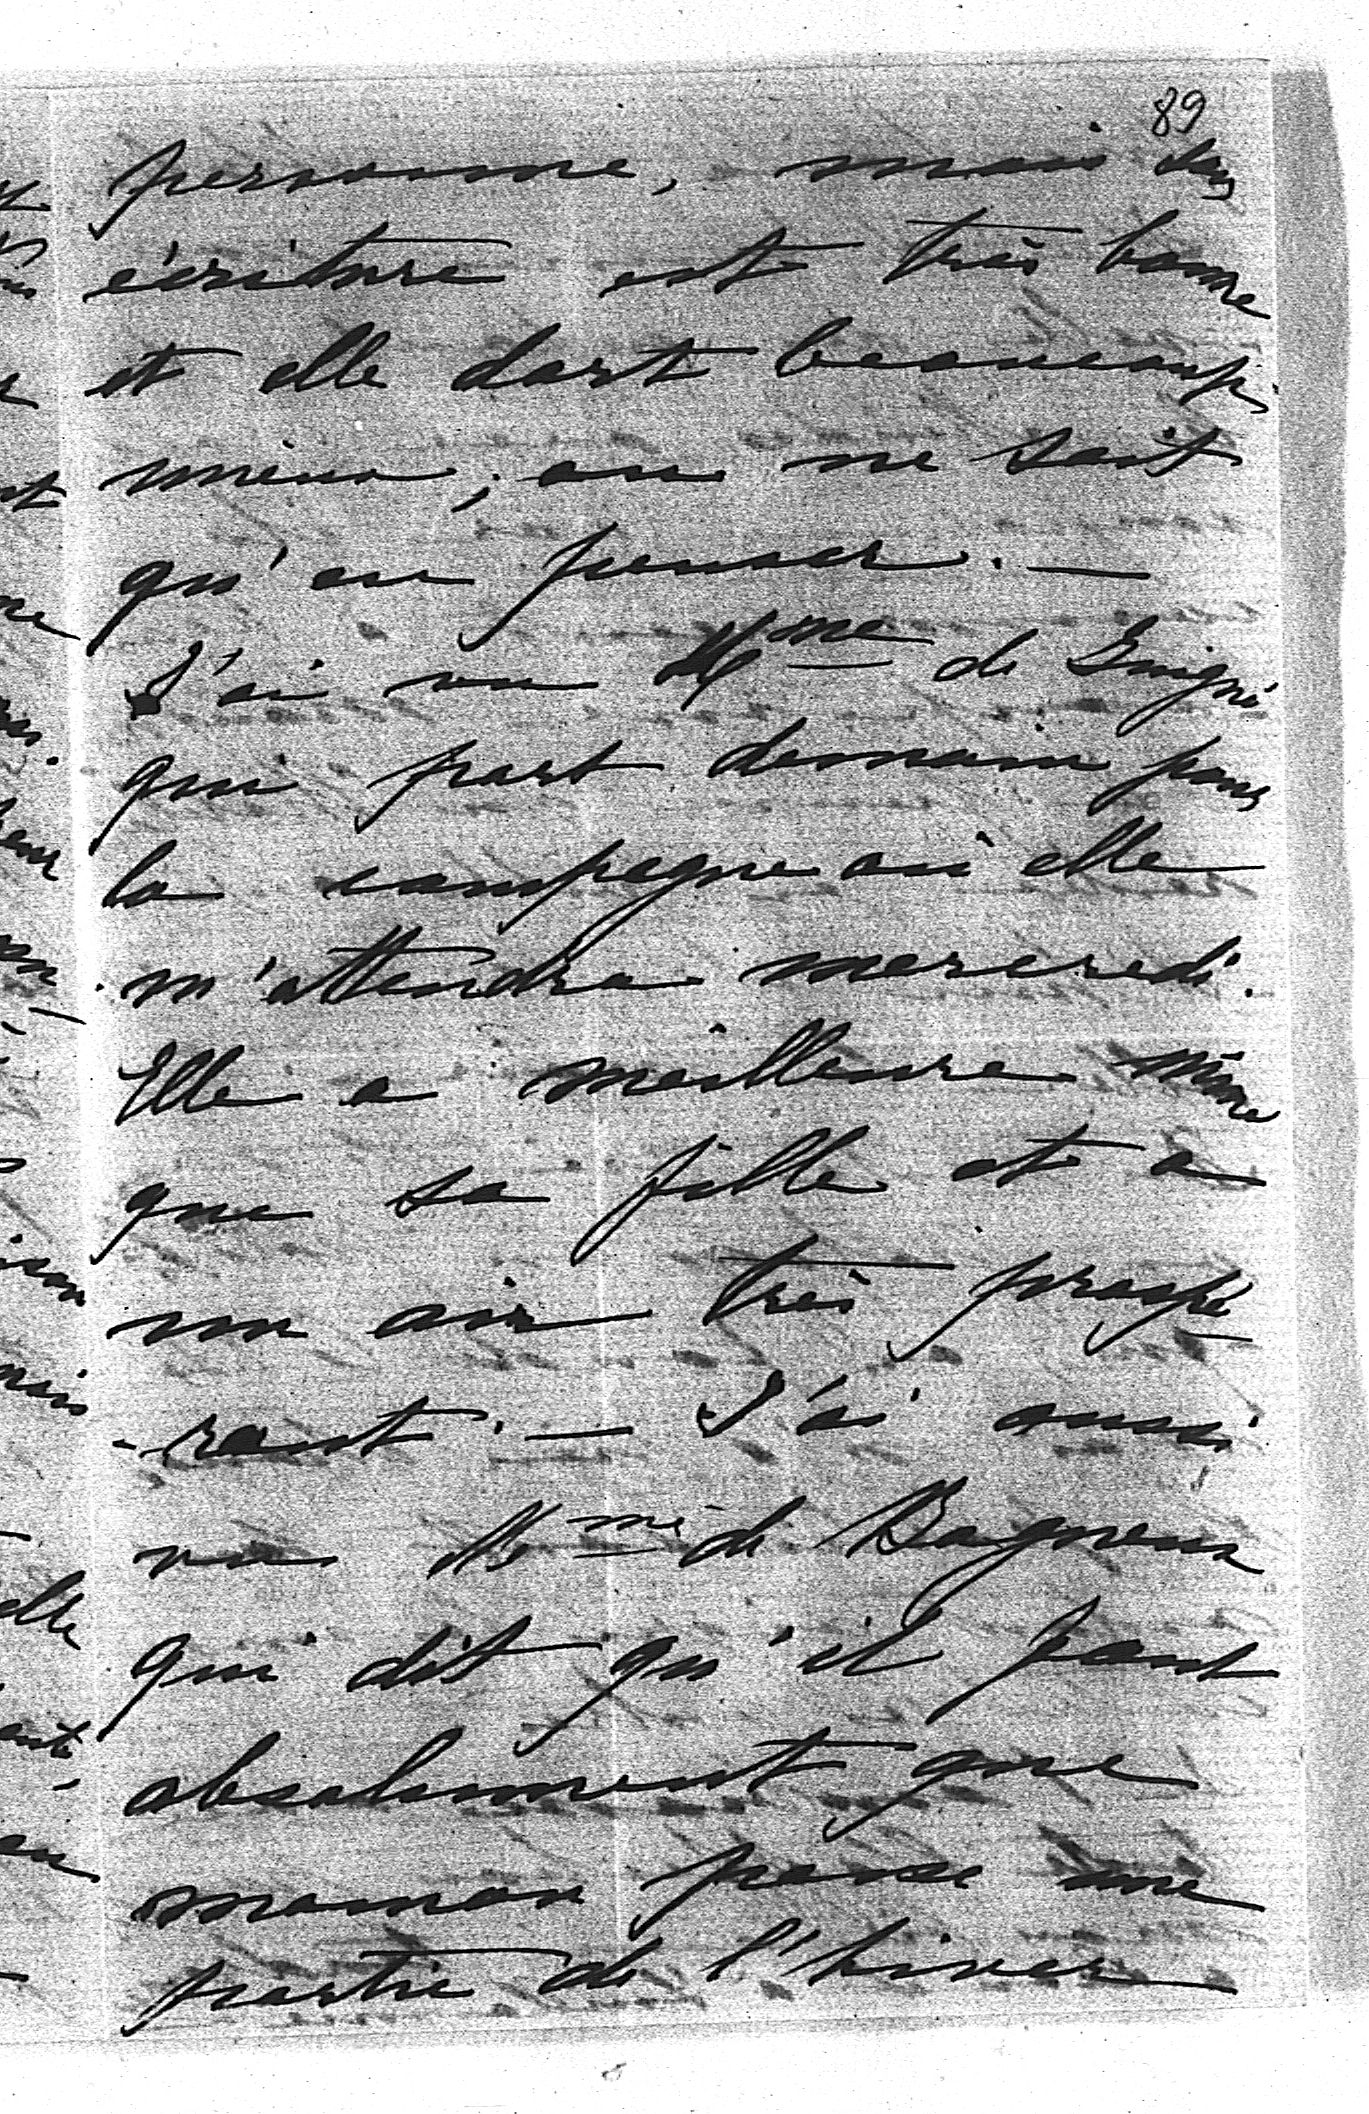 89
personne, mais son
écriture est très bonne
et elle dort beaucoup
mieux, on ne sait
qu'en penser. —
J'ai vu Mme de Guigné
qui part demain pour
la campagne où elle
m'attendra mercredi.
Elle a meilleure mine
que sa fille et a
un air très prospé
-rant. — J'ai aussi
vu Mme de Bagneux
qui dit qu'il faut
absolument que
maman passe une
partie de l'hiver